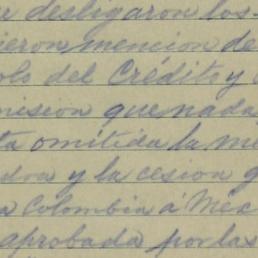 desligaron los
ieron mencion de
olo del Crédito y
mision que nada
ta omitida la me
dra y la cesion q
a Colombia á Méx
aprobada por las